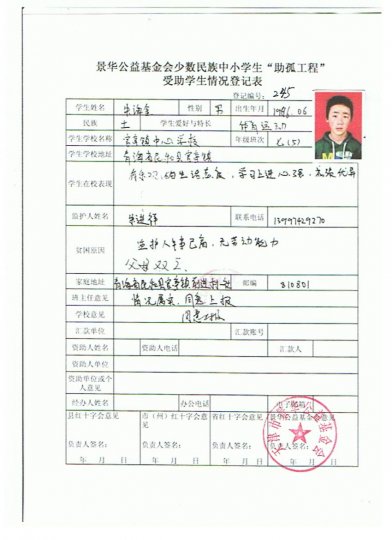 景华公益基金会少数民族中小学生“助孤工程”
受助学生情况登记表
登记编号：245
学生姓名 朱海金 性别 男 出生年月 1996.06
民族 土 学生爱好与特长 体育运动
学生学校名称 官亭镇中心学校 年级班次
学生学校地址 青海省民和县官亭镇
学生在校表现
监护人姓名 联系电话 13997429270
贫困原因 监护人年事已高，无劳动能力
父母双亡
家庭地址 青海省民和县官亭镇 邮编 810801
班主任意见 情况属实，同意上报
学校意见 同意上报
汇款单位 汇款账号
资助人姓名 资助人电话 汇款人
资助人单位
资助单位或个人意见
经办人姓名 办公电话 电子邮箱
县红十字会意见 市（州）红十字会意见 省红十字会意见 景华公益基金会意见
负责人签名： 负责人签名： 负责人签名： 负责人签名：
年 月 日 年 月 日 年 月 日 年 月 日
天津市景华公益基金会